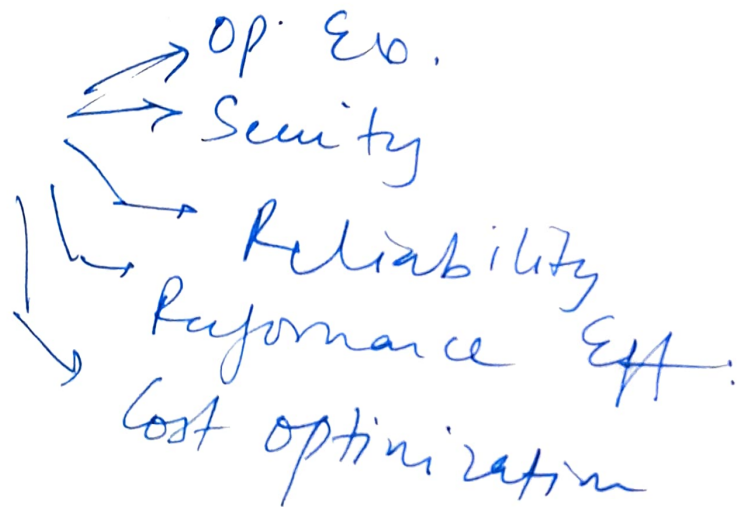 Op. Ex.
Security
Reliability
Performance Eff.
Cost optimization